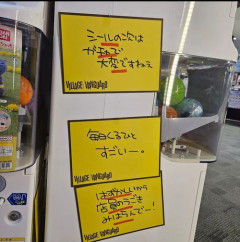 シールの次は
ガチャで
大変ですねぇ
VILLAGE VANGUARD
毎日くるひと
すごいー。
VILLAGE VANGUARD
はずかしいから
店員のうごき
みはらんでー!
VILLAGE VANGUARD